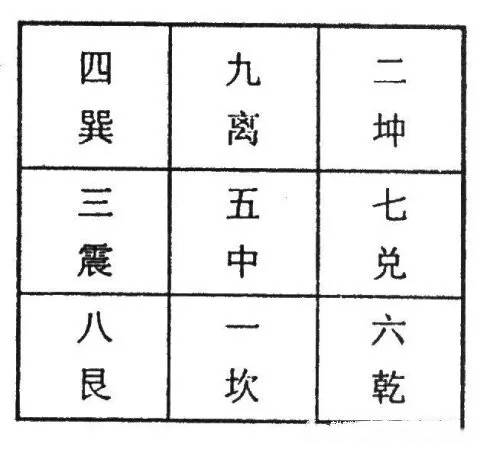 四 九 二
巽 离 坤
三 五 七
震 中 兑
八 一 六
艮 坎 乾